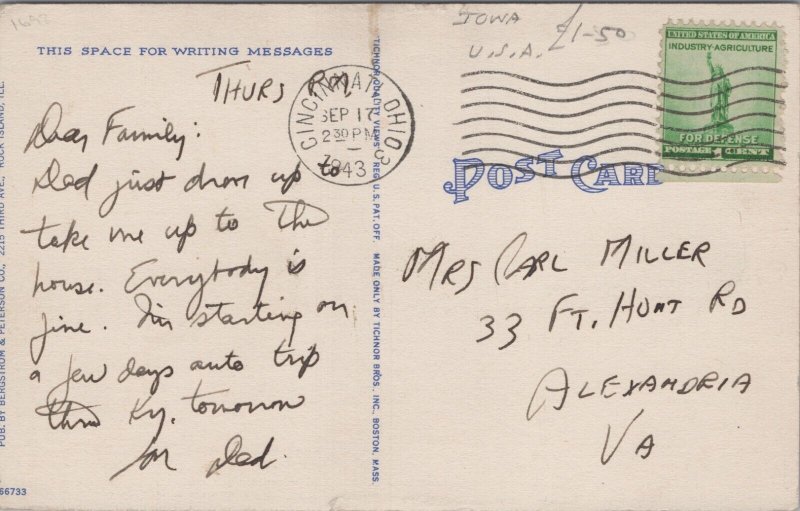 1643
THIS SPACE FOR WRITING MESSAGES
THURS PM.
Dear Family:
Dad just drove up to
take me up to the
house. Everybody is
fine. I'm starting on
a few days auto trip
thru Ky. tomorrow
for Dad.
PUB. BY BERGSTROM & PETERSON CO., 2215 THIRD AVE., ROCK ISLAND, ILL.
66733
TICHNOR QUALITY VIEWS REG. U. S. PAT. OFF. MADE ONLY BY TICHNOR BROS., INC., BOSTON, MASS.
CINCINNATI, OHIO
SEP 17
2 30 PM
1943
3
IOWA
U.S.A.
£1-50
UNITED STATES OF AMERICA
INDUSTRY-AGRICULTURE
FOR DEFENSE
POSTAGE 1 CENT
POST CARD
MRS CARL MILLER
33 FT. HUNT RD
ALEXANDRIA
VA